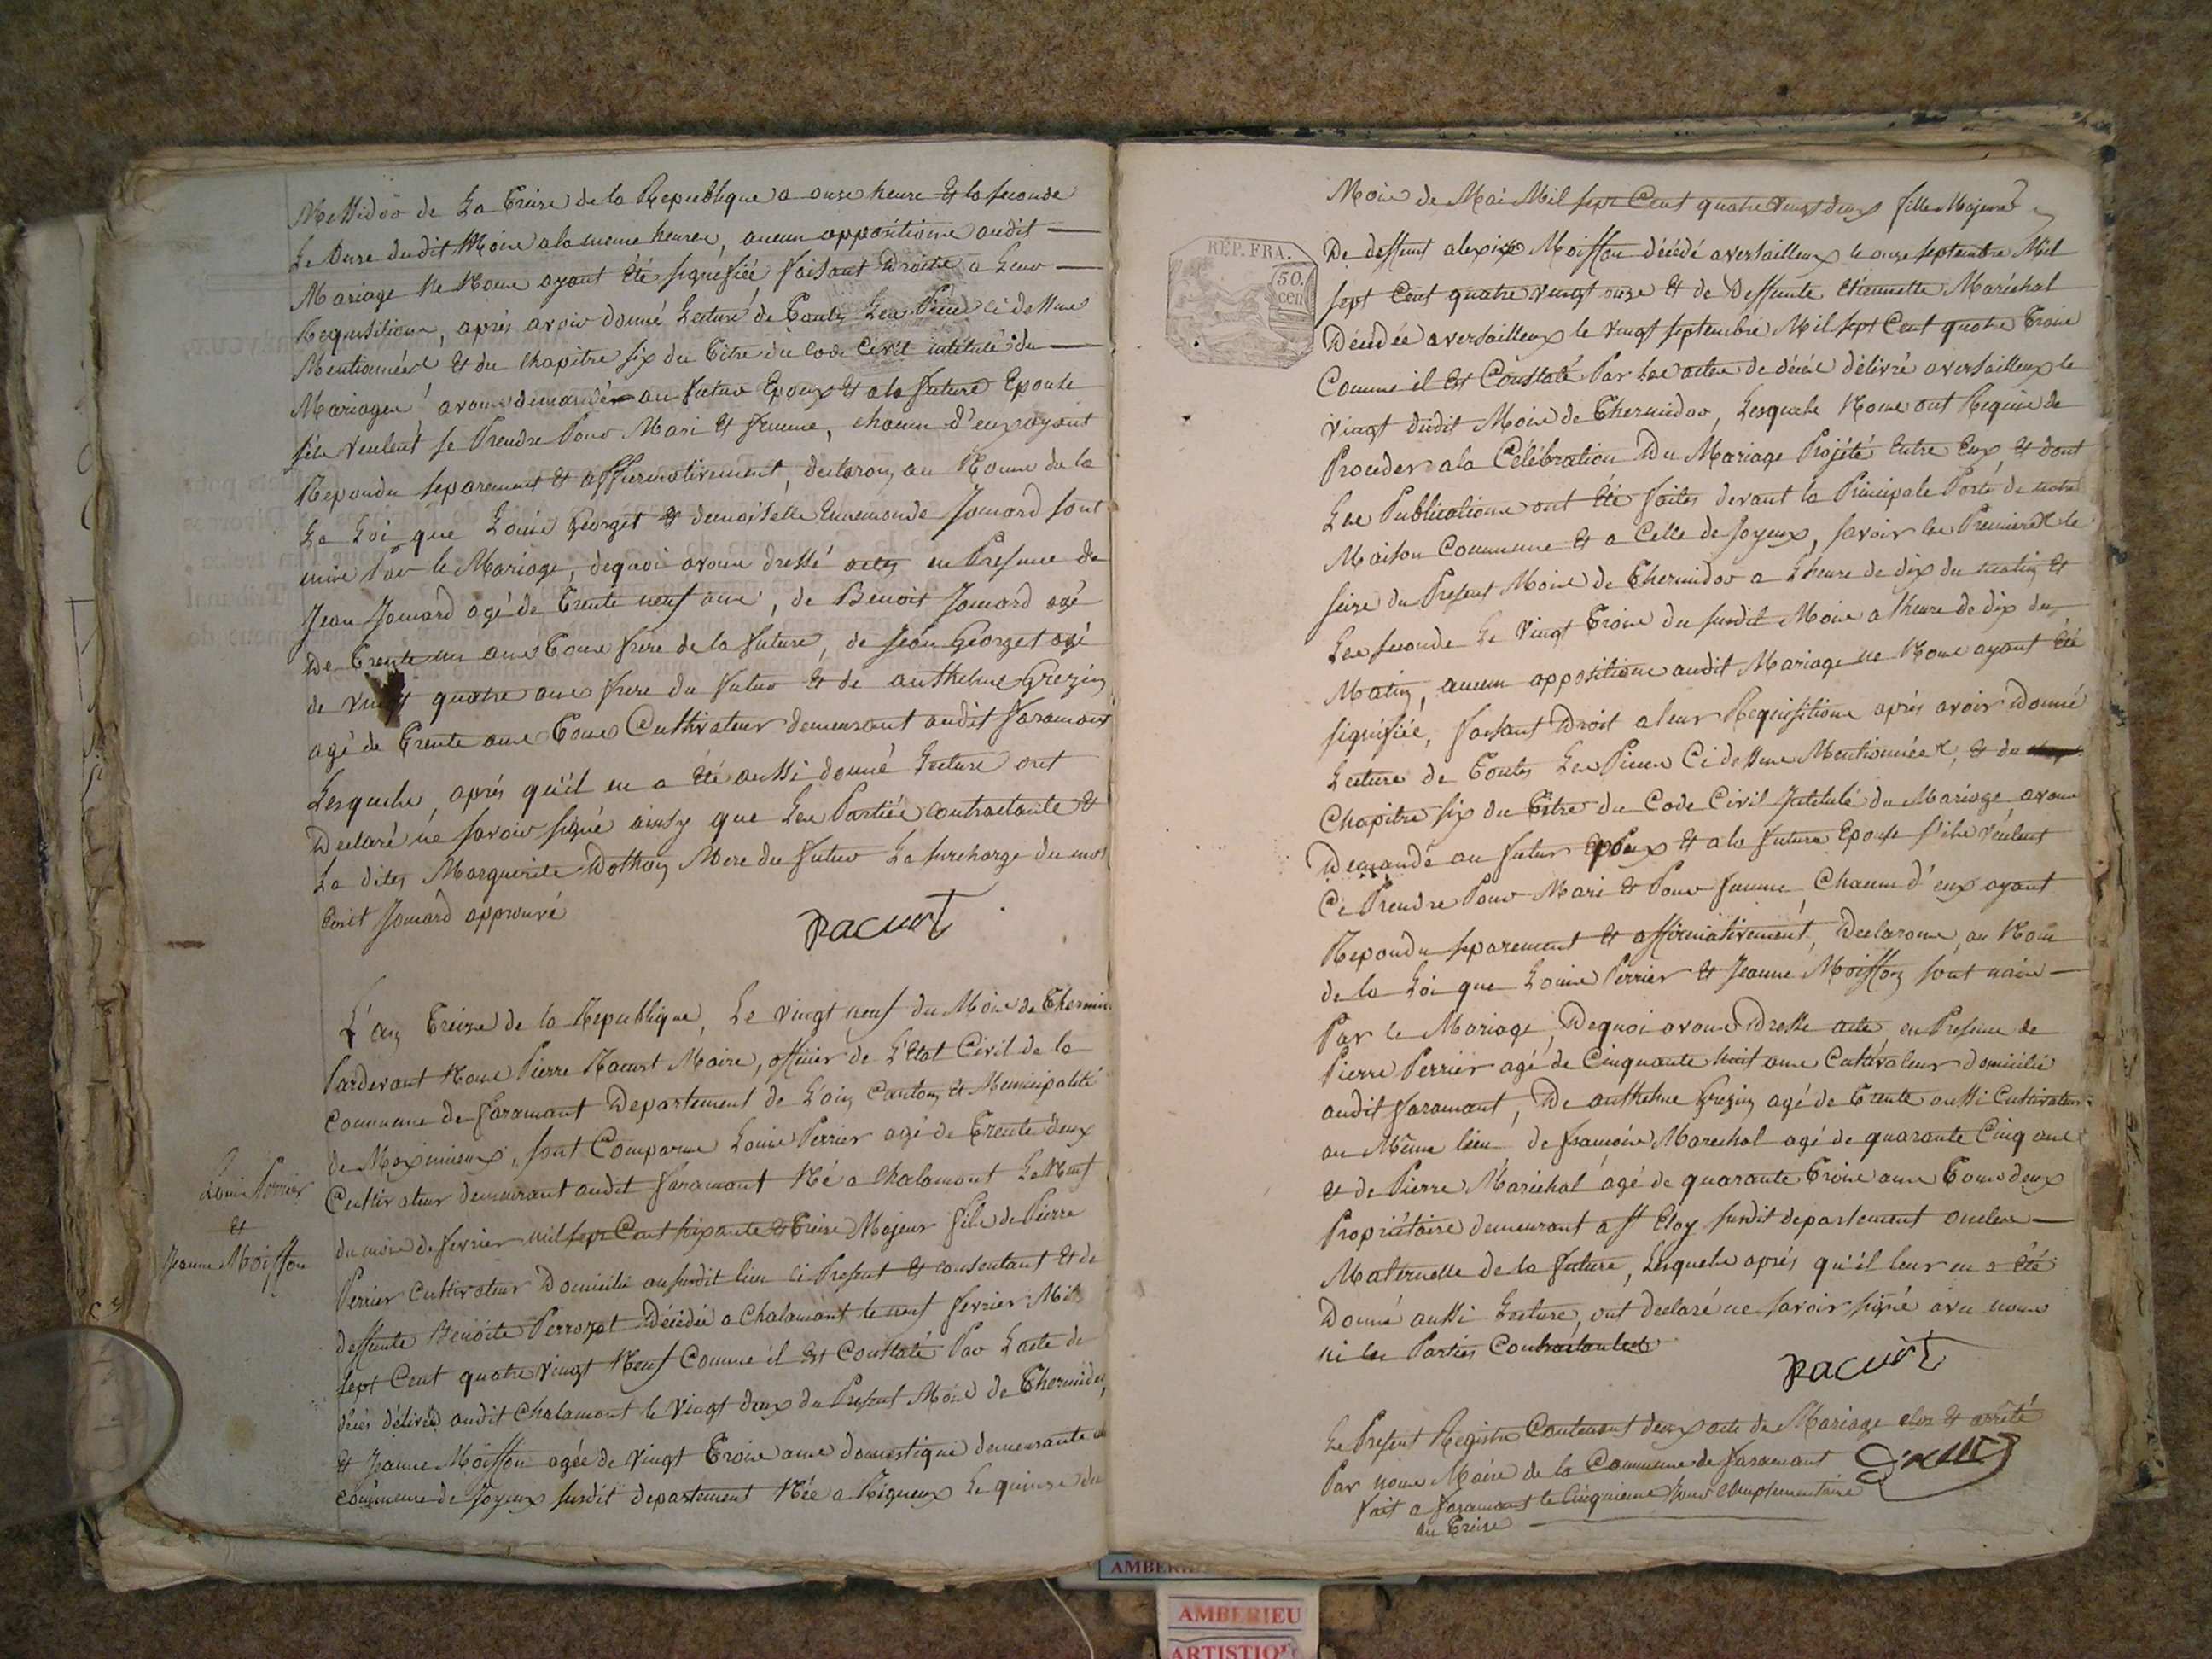 Messidor de La Treise de la Republique a onse heure & la seconde
Le onse dudit Mois a la meme heure, aucun oppositions audit
Mariage ne Nous ayant été signifiée, faisant Droite a Leur
Requisitions, aprés avoir donné Lecture de Toutes Les Pieces ci dessus
Mentionnées & du chapitre six du Titre du Code Civil intitulé du
Mariages avons demandés au futur Epoux & a la future Epouse
s'ils veulent se Prendre Pour Mari & femme, chacun d'eux ayant
Repondu separement & affirmativement, declarons au Nom de la
La Loi que Louis Georget & demoiselle Ennemonde Jomard sont
unis Par le Mariage, dequoi avons dressé actes en Presence de
Jean Jomard agé de Trente neuf ans, de Benoit Jomard agé
De Trente un ans Tous frere de la future, de Jean Georget agé
de vingt quatre ans frere du futur & de anthelme Grezin
agé de Trente ans Tous Cultivateur demeurant audit faramant
Lesquels, aprés qu'il en a été aussi donné Lecture ont
Declaré ne savoir signé ainsy que Les Partiés contractants &
La dites Marguerite Dothon Mere du futur La surcharge du mot
ecrit Jomard approuvé
Racurt
L'an Treize de la Republique, Le vingt neuf du Mois de Thermi
Pardevant Nous Pierre Racurt Maire, officier de L'etat Civil de la
Commune de faramant Departement de L'ain Canton & Municipalité
de Meximieux, sont Comparus Louis Perrier agé de Trente deux
Cultivateur demeurant audit faramant Né a Chalamont Le Neuf
du mois de fevrier mil sept Cent soixante & Treise Majeur fils de Pierre
Perrier Cultivateur Domicilié au susdit lieu ci Present & consentant & de
deffunte Benoite Perrozet Décédée a Chalamont le neuf fevrier Mil
sept Cent quatre vingt Neuf Comme il Est Constaté Par L'acte de
décés délivré audit Chalamont le vingt deux du Present Mois de Thermidor,
& Jeanne Moisson agée de vingt Trois ans domestique demeurante
commune de Joyeux susdit departement Née a Rigneux Le quinse du
Louis Perrier
&
Jeanne Moisson
Mois de Mai Mil sept Cent quatre vingt deux fille Majeure
RÉP. FRA.
50
cen
De deffunt alexis Moisson décédé a versailleux le onse septembre Mil
sept Cent quatre vingt onse & de Deffunte Etiennette Maréchal
Décédée a versailleux le vingt septembre Mil sept Cent quatre Trois
Comme il Est Constaté Par Les actes de décés délivré a versailleux le
vingt dudit Mois de Thermidor, Lesquels Nous ont Requis de
Proceder a la Célébration Du Mariage Projété Entre Eux & dont
Les Publications ont Eté faites devant la Principale Porte de notre
Maison Commune & a Celle de Joyeux, savoir les Premieres le
seise du Present Mois de Thermidor a L'heure de dix du matin &
Les seconde Le vingt Trois du susdit Mois a l'heure de dix du
Matin, aucun oppositions audit Mariage ne Nous ayant été
signifiée, faisant Droit a leur Requisitions aprés avoir Donné
Lecture de Toutes Les Pieces Ci dessus Mentionnées, & du
Chapitre six du Titre du Code Civil Intitulé du Mariage avons
Demandé au futur Epoux & a la future Epouse s'ils veulent
Ce Prendre Pour Mari & Pour femme, Chacun d'eux ayant
Repondu separement & affirmativement, Declarons, au Nom
de la Loi que Louis Perrier & Jeanne Moisson sont unis
Par le Mariage, Dequoi avons Dressé acte en Presence de
Pierre Perrier agé de Cinquante huit ans Cultivateur Domicilié
audit faramant, De anthelme Grezin agé de Trente aussi Cultivateur
au Même lieu de francois Marechal agé de quarante Cinq ans
& de Pierre Maréchal agé de quarante Trois ans Tous deux
Propriétaire demeurant a st Eloy susdit departement oncles
Maternelle de la future, Lesquels aprés qu'il leur en a été
Donné aussi Lecture, ont declaré ne savoir signé avec nous
ni les Parties Contractantes
Racurt
Le Present Registre Contenant deux acte de Mariage clos & arrêté
Par nous Maire de la Commune de faramant
fait a faramant le Cinquieme Jour Complementaire
an Treise
AMBERIEU
ARTISTIQU